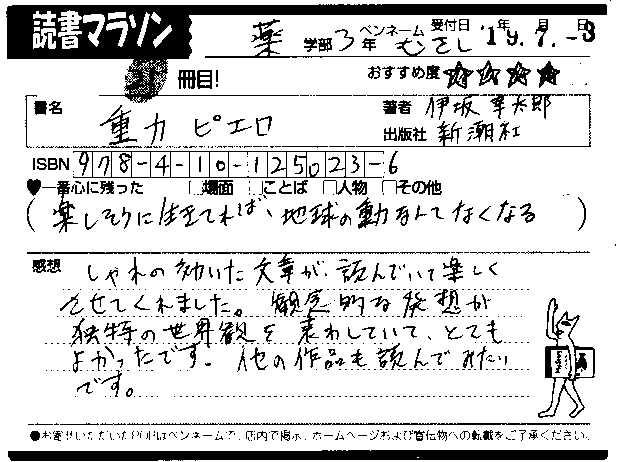 読書マラソン
薬 学部 3 年 ペンネーム むさし 受付日 '19年 7月 -8日
冊目! おすすめ度 ☆☆☆☆
書名 重力ピエロ
著者 伊坂幸太郎
出版社 新潮社
ISBN 978-4-10-125023-6
♥一番心に残った □場面 □ことば □人物 □その他
(楽しそうに生きてれば、地球の重力なんてなくなる)
感想 しゃれの効いた文章が、読んでいて楽しく
させてくれました。 観念的な発想が
独特の世界観を表わしていて、とても
よかったです。他の作品も読んでみたい
です。
●お寄せいただいたPOPはペンネームで、店内で掲示、ホームページおよび宣伝物への転載をご了承ください。